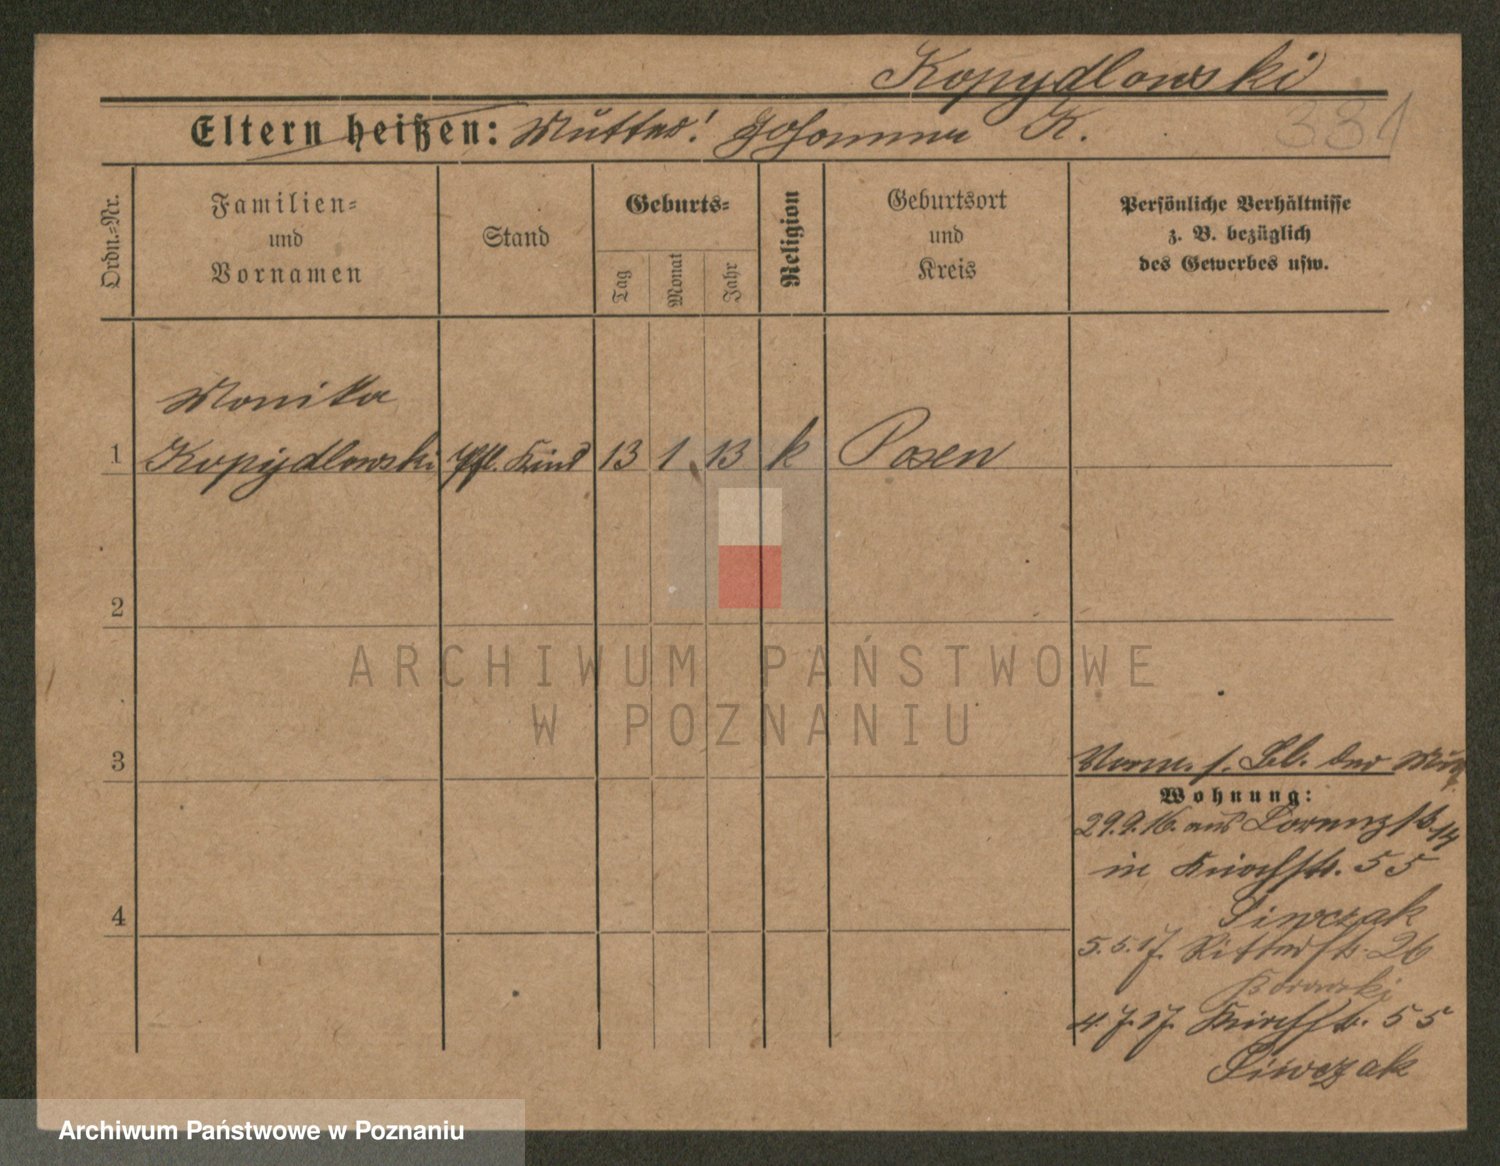 Kopydlowski
Eltern heißen: Mutter: Johanna K. 331
Ordn.=Nr.
Familien=
und
Vornamen
Stand
Geburts=
Tag
Monat
Jahr
Religion
Geburtsort
und
Kreis
Persönliche Verhältnisse
z. B. bezüglich
des Gewerbes usw.
Monika
1 Kopydlowski Pfl. Kind 13 1 13 k Posen
2
3
4
s. Bl. der
Wohnung:
29.9.16. aus Lorenzstr. 14
in Kirchstr. 55
Siwczak
5.5.17. Ritterstr. 26
Borowski
4.7.17. Kirchstr. 55
Siwczak
ARCHIWUM PAŃSTWOWE
W POZNANIU
Archiwum Państwowe w Poznaniu